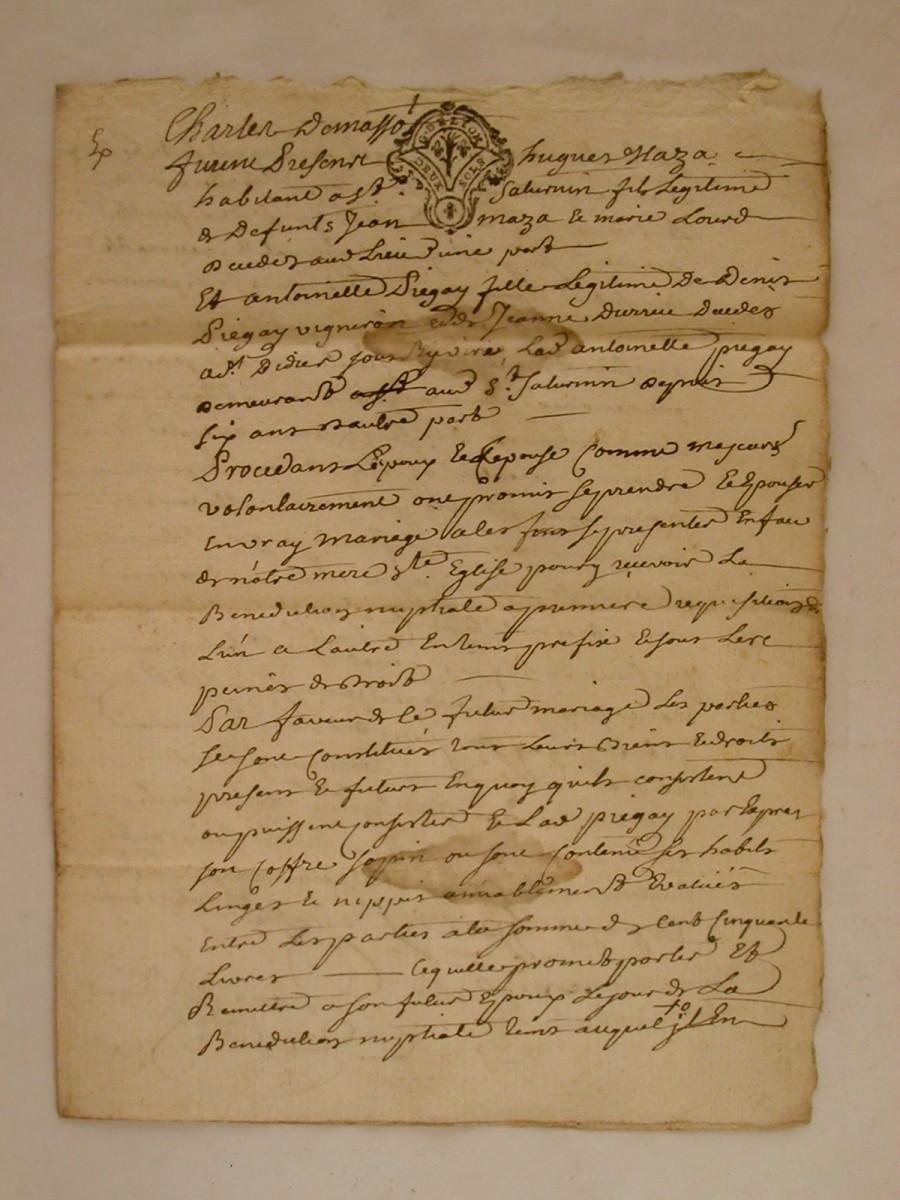 Ex
Charles Demasso
furent presents hugues Maza
G. DE LYON
DEUX SOLS
habitant a st. Saturnin fils legitime
de defunts Jean maza et marie Lourd
decedes aud lieu d'une part
Et antoinette Piégay fille Legitime de Denis
Piégay vigneron et de Jeanne Durieu decedes
a st. Didier sous Riviere, Lad antoinette piegay
demeurant aud st. Saturnin depuis
six ans d'autre part
Procedans L'époux et L'epouse comme majeurs
volontairement ont promis se prendre et Epouser
En vray mariage a les fins se presenter En face
de nôtre mere ste. Eglise pour y reçevoir La
Benediction nuptiale a premiere requisition de
L'un a L'autre En tems prefix et sous Les
peines de droit
Par faveur de ce futur mariage Les parties
se sont constitués tous Leurs Biens et droits
present et futurs En quoy quils consistent
ou puissent consister et Lad piégay par Exprès
son coffre sapin ou sont contenu ses habits
Linges et nippes amiablement Evalués
Entre Les parties a la somme de cent cinquante
Livres ce quelle promet porter Et
Remettre a son futur Epoux Le jour de La
Benediction nuptiale tems auquel il En